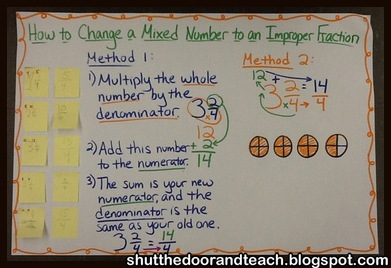 How to Change a Mixed Number to an Improper Fraction
Method 1:
1) Multiply the whole
number by the
denominator.
3 2/4
12
2) Add this number
to the numerator.
+ 2
14
3) The sum is your new
numerator, and the
denominator is the
same as your old one.
3 2/4 = 14/4
Method 2:
12 +
3 2/4 = 14/4
x
shutthedoorandteach.blogspot.com